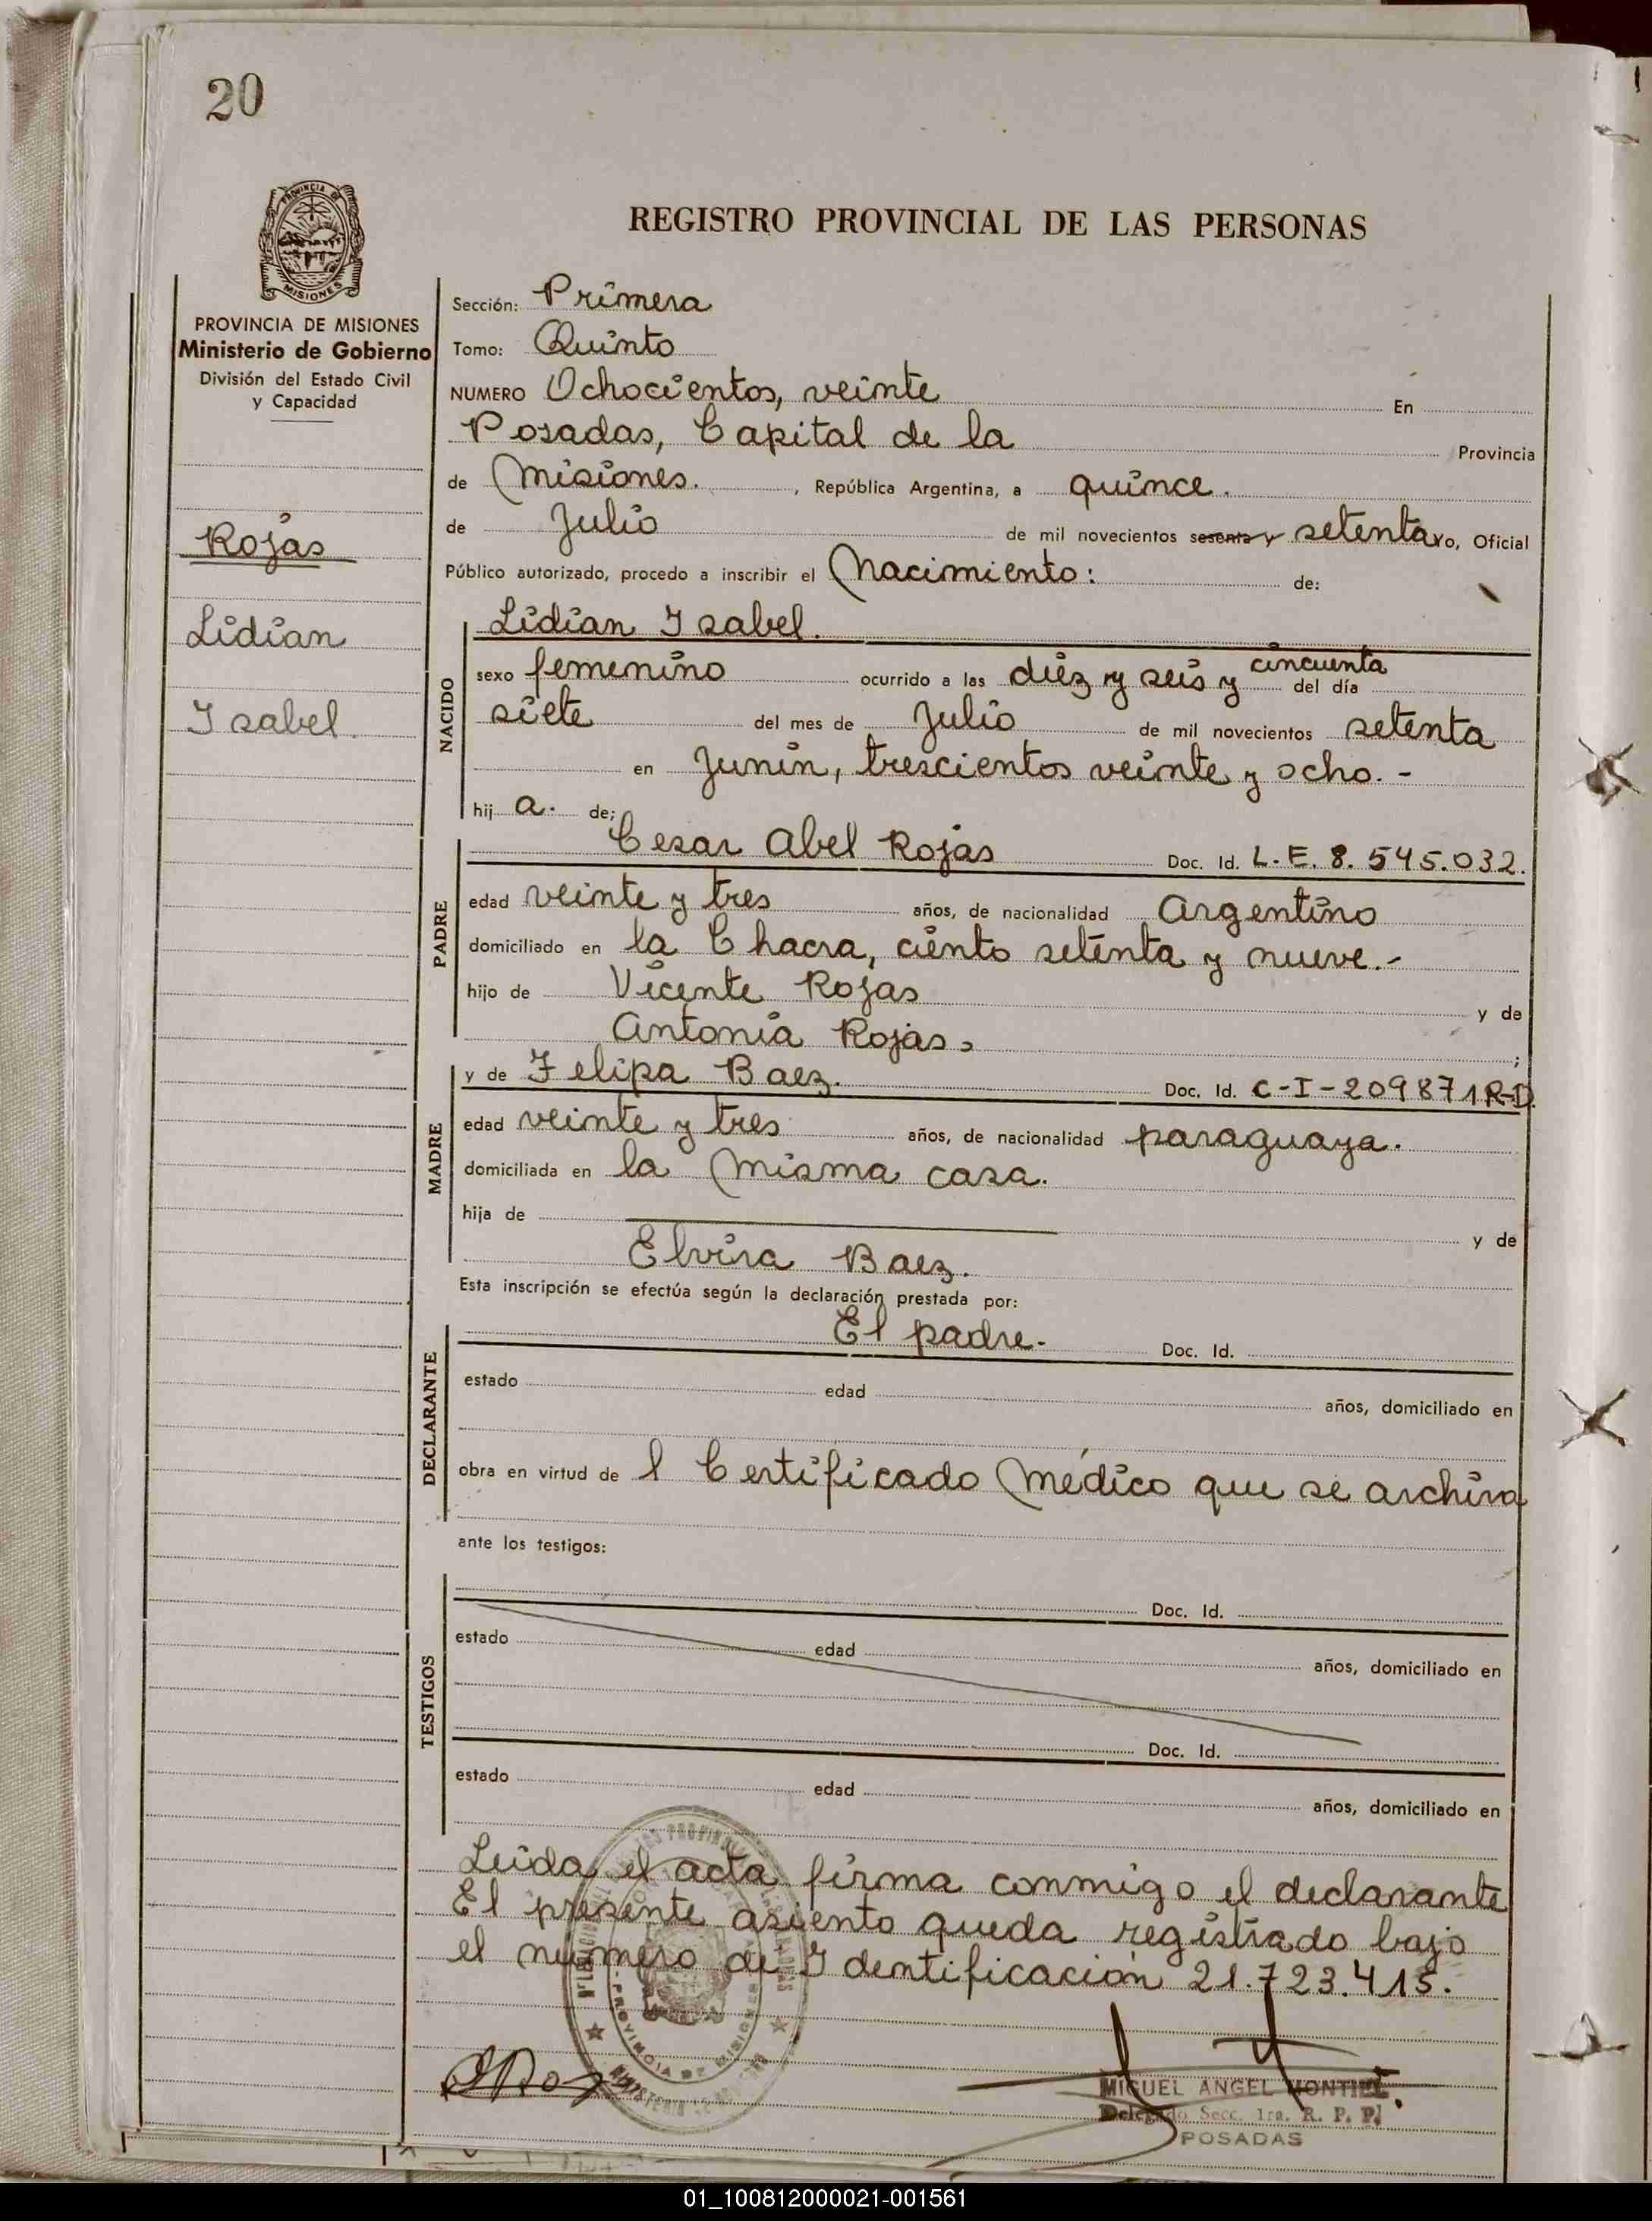 20
PROVINCIA DE
MISIONES
REGISTRO PROVINCIAL DE LAS PERSONAS
PROVINCIA DE MISIONES
Ministerio de Gobierno
División del Estado Civil
y Capacidad
Rojas
Lidian
Isabel.
Sección: Primera
Tomo: Quinto
NUMERO Ochocientos, veinte En
Posadas, Capital de la Provincia
de Misiones. , República Argentina, a quince.
de Julio de mil novecientos sesenta y setenta yo, Oficial
Público autorizado, procedo a inscribir el Nacimiento: de:
NACIDO
Lidian Isabel.
sexo femenino ocurrido a las diéz y seis y cincuenta del día
siete del mes de Julio de mil novecientos setenta
en Junín, trescientos veinte y ocho.-
hij a. de:
PADRE
Cesar Abel Rojas Doc. Id. L.E. 8.545.032.
edad veinte y tres años, de nacionalidad Argentino
domiciliado en la Chacra, ciento setenta y nueve.-
hijo de Vicente Rojas y de
Antonia Rojas, ;
MADRE
y de Felipa Baez. Doc. Id. C-I-209871R-D.
edad veinte y tres años, de nacionalidad paraguaya.
domiciliada en la misma casa.
hija de y de
Elvira Baez.
Esta inscripción se efectúa según la declaración prestada por:
DECLARANTE
El padre.- Doc. Id.
estado edad años, domiciliado en
obra en virtud de l Certificado Médico que se archiva
ante los testigos:
TESTIGOS
Doc. Id.
estado edad años, domiciliado en
Doc. Id.
estado edad años, domiciliado en
Leida el acta firma conmigo el declarante
El presente asiento queda registrado bajo
el número de Identificación 21.723.415.
PROVINCIA DE MISIONES
MIGUEL ANGEL MONTIEL
Delegado Secc. 1ra. R. P. P.
POSADAS
01_100812000021-001561